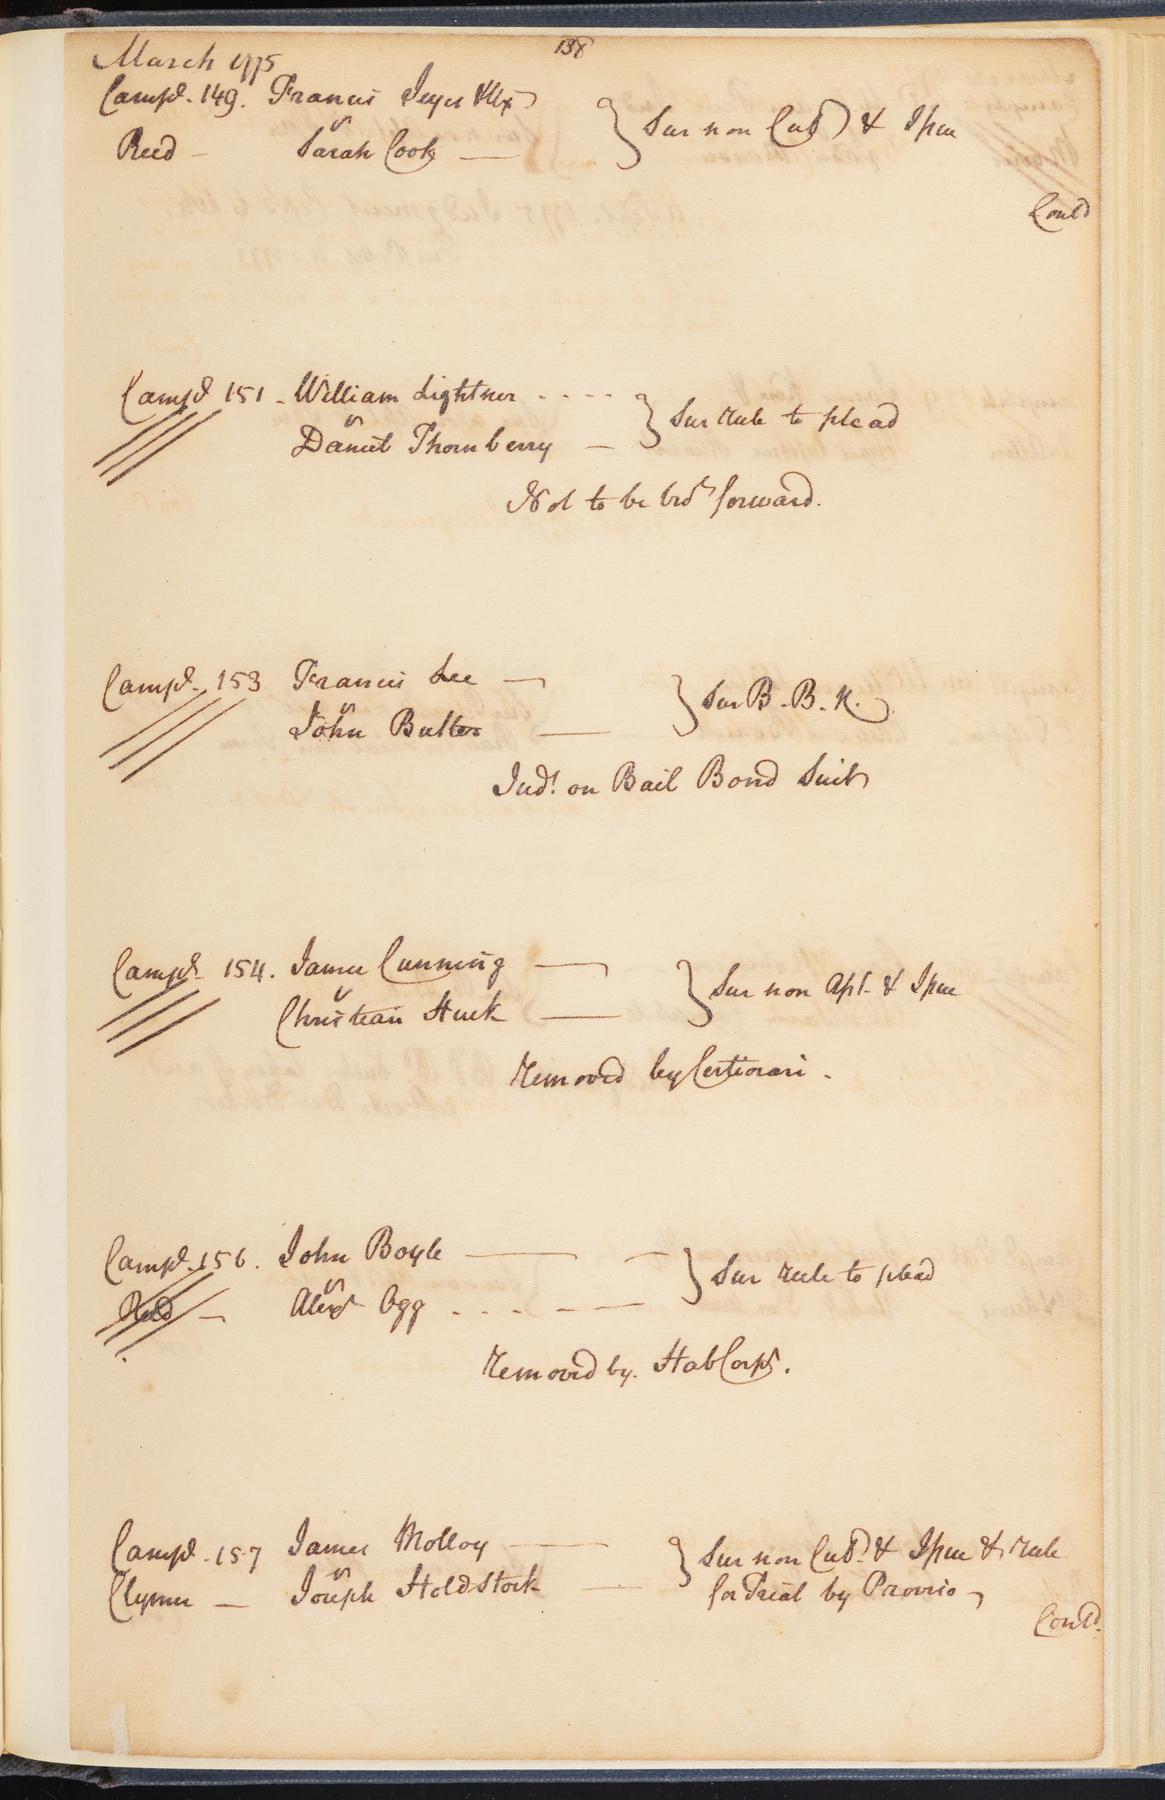 138
March 1775
Campd. 149. Francis Jeyes & Ux
vs
Reed — Sarah Cook — } Sur non Cul & Issue
Contd
Campd 151 - William Lightner . . . . } Sur Rule to plead
vs
Daniel Thornberry —
Not to be brot forward.
Campd. 153 Francis Lee — } Sur B. B. R.
vs
John Butler —
Judt. on Bail Bond Suit
Campd. 154. James Cunning — } Sur non Apt. & Issue
v
Christian Huck —
Removed by Certiorari .
Campd. 156. John Boyle — } Sur Rule to plead
vs
Reed — Alexr Ogg . . . - - —
Removed by. Hab Corps.
Campd. 157 James Molloy — } Sur non Culp. & Issue & Rule
vs
Clymer — Joseph Holdstock — for Trial by Proviso
Contd.